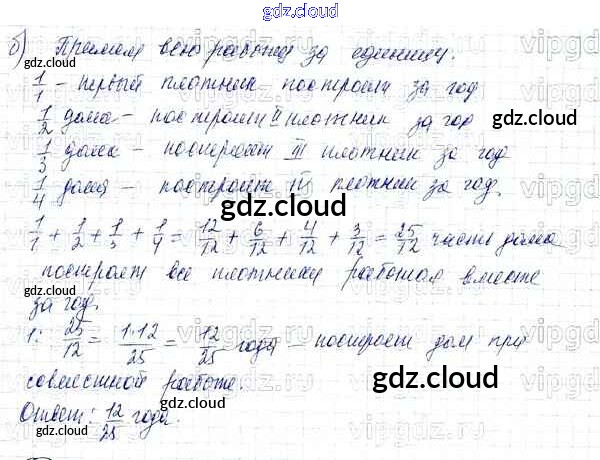 gdz.cloud
б) Примем всю работу за единицу.
1/1 - первый плотник построит за год
1/2 дома - построит II плотник за год
gdz.cloud
1/3 дома - построит III плотник за год
1/4 дома - построит IV плотник за год.
gdz.cloud
1/1 + 1/2 + 1/3 + 1/4 = 12/12 + 6/12 + 4/12 + 3/12 = 25/12 части дома
построят все плотники работая вместе
gdz.cloud
за год.
gdz.cloud
1 : 25/12 = 1·12/25 = 12/25 года - построят дом при
совместной работе.
gdz.cloud
gdz.cloud
Ответ: 12/25 года.
gdz.cloud